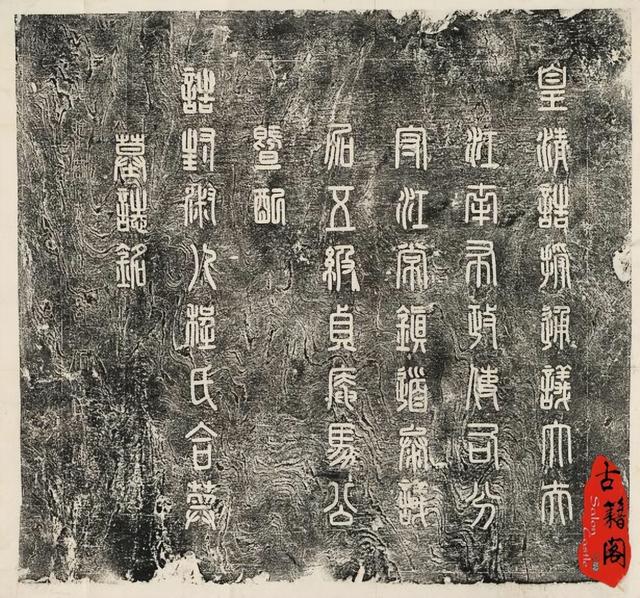 皇清誥授通議大夫
江南布政使司分
守江常鎮道參議
加五級貞庵馬公
暨配
誥封淑人程氏合葬
墓誌銘
古籍阁
Salon